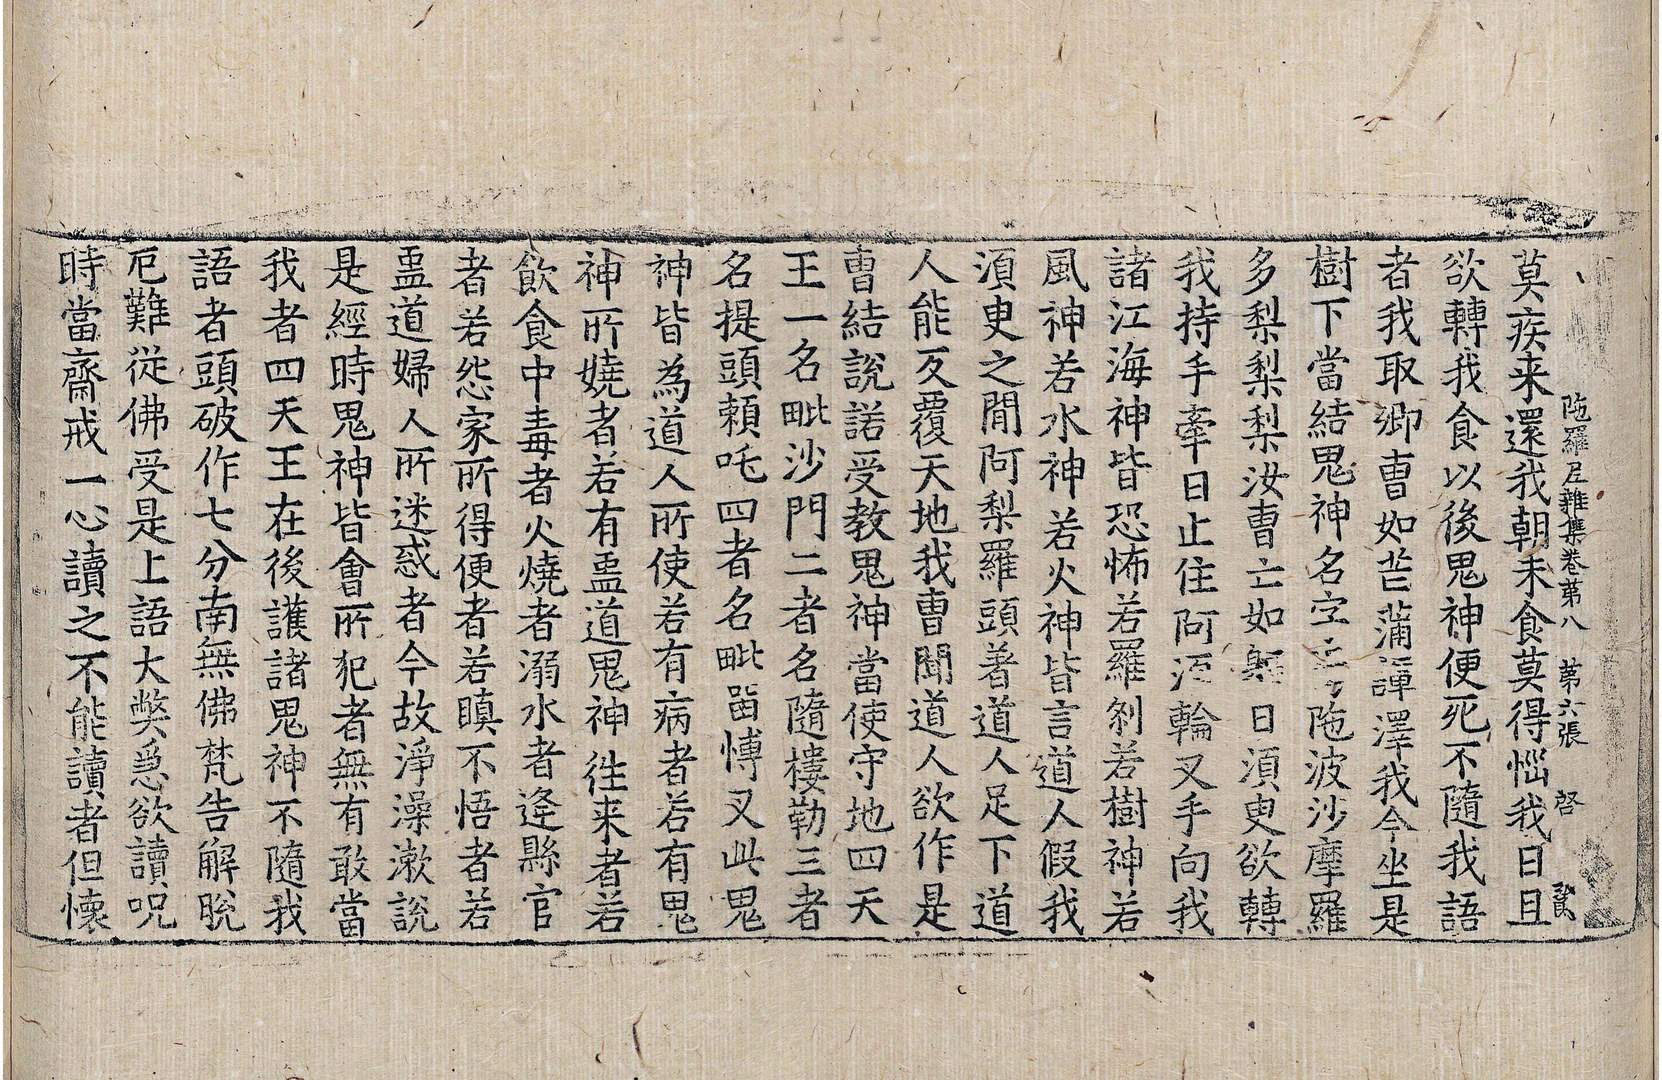 陁羅尼雜集卷苐八　苐六張　啓
莫疾来還我朝未食莫得惱我日且
欲轉我食以後鬼神便死不隨我語
者我取卿曹如芒蒲譚澤我今坐是
樹下當結鬼神名字　陁波沙摩羅
多梨梨梨汝曹亡如　日湏臾欲轉
我持手牽日止住阿　輪叉手向我
諸江海神皆恐怖若羅剎若樹神若
風神若水神若火神皆言道人假我
湏臾之閒阿梨羅頭著道人足下道
人能反覆天地我曹聞道人欲作是
曹結說諾受教鬼神當使守地四天
王一名毗沙門二者名隨樓勒三者
名提頭頼吒四者名毗留愽叉此鬼
神皆為道人所使若有病者若有鬼
神所嬈者若有蠱道鬼神往来者若
飲食中毒者火燒者溺水者逢縣官
者若怨家所得便者若瞋不悟者若
蠱道婦人所迷惑者今故淨澡漱說
是經時鬼神皆會所犯者無有敢當
我者四天王在後護諸鬼神不隨我
語者頭破作七分南無佛梵告解脫
厄難從佛受是上語大獘惡欲讀呪
時當齋戒一心讀之不能讀者但懷